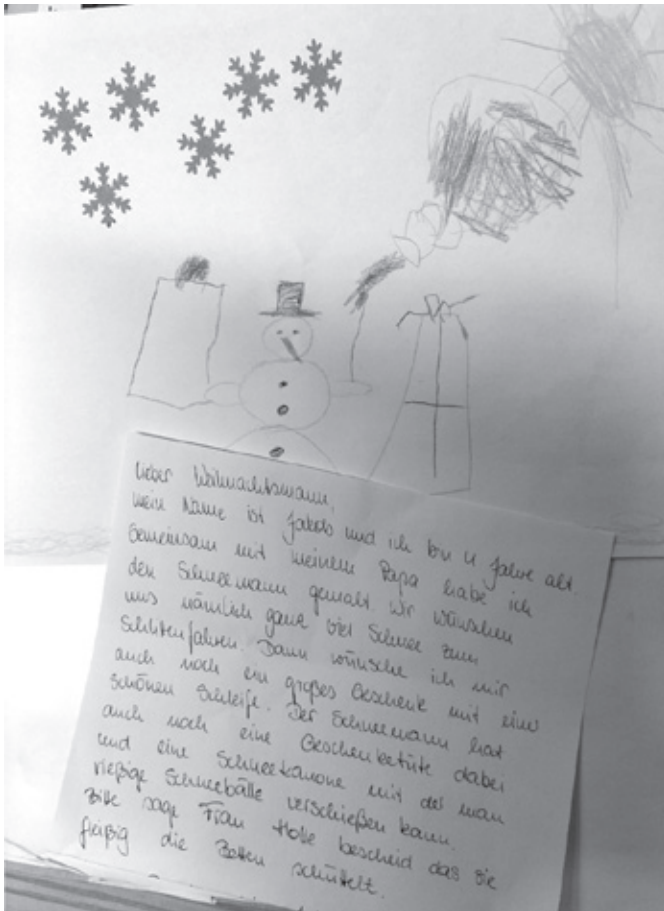 Lieber Weihnachtsmann,
mein Name ist Jakob und ich bin 4 Jahre alt.
Gemeinsam mit meinem Papa habe ich
den Schneemann gemalt. Wir wünschen
uns nämlich ganz viel Schnee zum
Schlittenfahren. Dann wünsche ich mir
auch noch ein großes Geschenk mit einer
schönen Schleife. Der Schneemann hat
auch noch eine Geschenketüte dabei
und eine Schneekanone mit der man
rießige Schneebälle verschießen kann.
Bitte sage Frau Holle bescheid das sie
fleißig die Betten schüttelt.